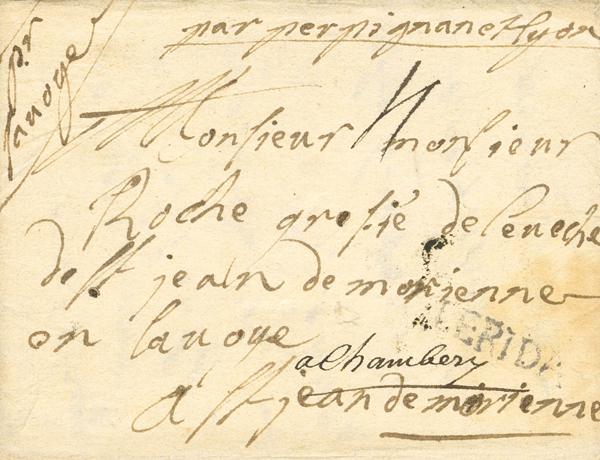 par perpignan et lyon
pr
lavoye
Monsieur monsieur
Roche grefié de leveché
de st jean demorienne
en lavoye
LERIDA
a Chambery
A st jean de morienne